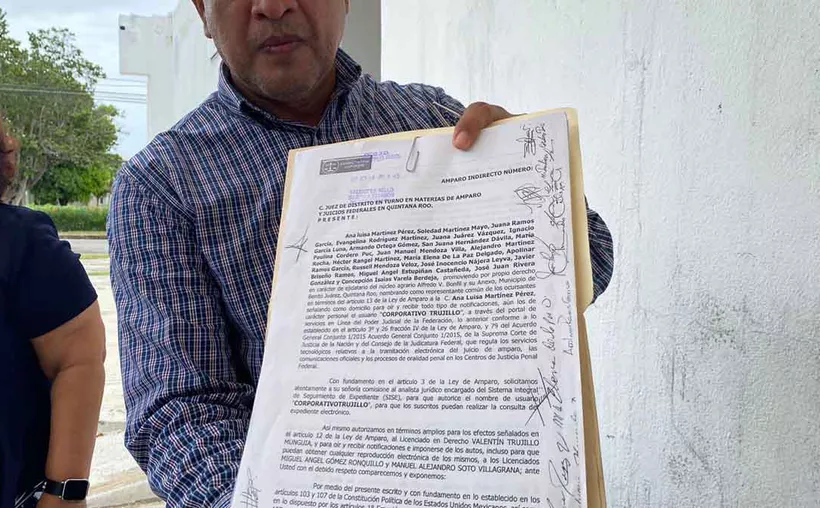 AMPARO INDIRECTO NÚMERO:
C. JUEZ DE DISTRITO EN TURNO EN MATERIAS DE AMPARO
Y JUICIOS FEDERALES EN QUINTANA ROO.
P R E S E N T E :
Ana luisa Martínez Pérez, Soledad Martínez Mayo, Juana Ramos
García, Evangelina Rodríguez Martínez, Juana Juárez Vázquez, Ignacio
García Luna, Armando Ortega Gómez, San Juana Hernández Dávila, María
Paulina Cordero Puc, Juan Manuel Mendoza Villa, Alejandro Martínez
Rocha, Héctor Rangel Martínez, María Elena De La Paz Delgado, Apolinar
Ramos García, Russell Mendoza Veloz, José Inocencio Nájera Leyva, Javier
Briseño Ramos, Miguel Angel Estupiñan Castañeda, José Juan Rivera
González y Concepción Isaías Varela Berdeja, promoviendo por propio derecho
en carácter de ejidatario del núcleo agrario Alfredo V. Bonfil y su Anexo, Municipio de
Benito Juárez, Quintana Roo, nombrando como representante común de los ocursantes
en términos del artículo 13 de la Ley de Amparo a la C. Ana Luisa Martínez Pérez,
señalando como domicilio para oír y recibir todo tipo de notificaciones, aún los de
carácter personal el usuario "CORPORATIVO TRUJILLO", a través del portal de
Servicios en Línea del Poder Judicial de la Federación, lo anterior conforme a lo
establecido en el artículo 3º y 26 fracción IV de la Ley de Amparo, y 79 del Acuerdo
General Conjunto 1/2015 Acuerdo General Conjunto 1/2015, de la Suprema Corte de
Justicia de la Nación y del Consejo de la Judicatura Federal, que regula los servicios
tecnológicos relativos a la tramitación electrónica del juicio de amparo, las
comunicaciones oficiales y los procesos de oralidad penal en los Centros de Justicia Penal
Federal.
Con fundamento en el artículo 3 de la Ley de Amparo, solicitamos
atentamente a su señoría comisione al analista jurídico encargado del Sistema Integral
de Seguimiento de Expediente (SISE), para que autorice el nombre de usuario
"CORPORATIVOTRUJILLO", para que los suscritos puedan realizar la consulta del
expediente electrónico.
Así mismo autorizamos en términos amplios para los efectos señalados en
el artículo 12 de la Ley de Amparo, al Licenciado en Derecho VALENTÍN TRUJILLO
MUNGUIA, y para oír y recibir notificaciones e imponerse de los autos, incluso para que
puedan obtener cualquier reproducción electrónica de los mismos, a los Licenciados
MIGUEL ANGEL GÓMEZ RONQUILLO y MANUEL ALEJANDRO SOTO VILLAGRANA; ante
Usted con el debido respeto comparecemos y exponemos:
Por medio del presente escrito y con fundamento en lo establecido en los
artículos 103 y 107 de la Constitución Política de los Estados Unidos Mexicanos, así como
en lo dispuesto por los artículos